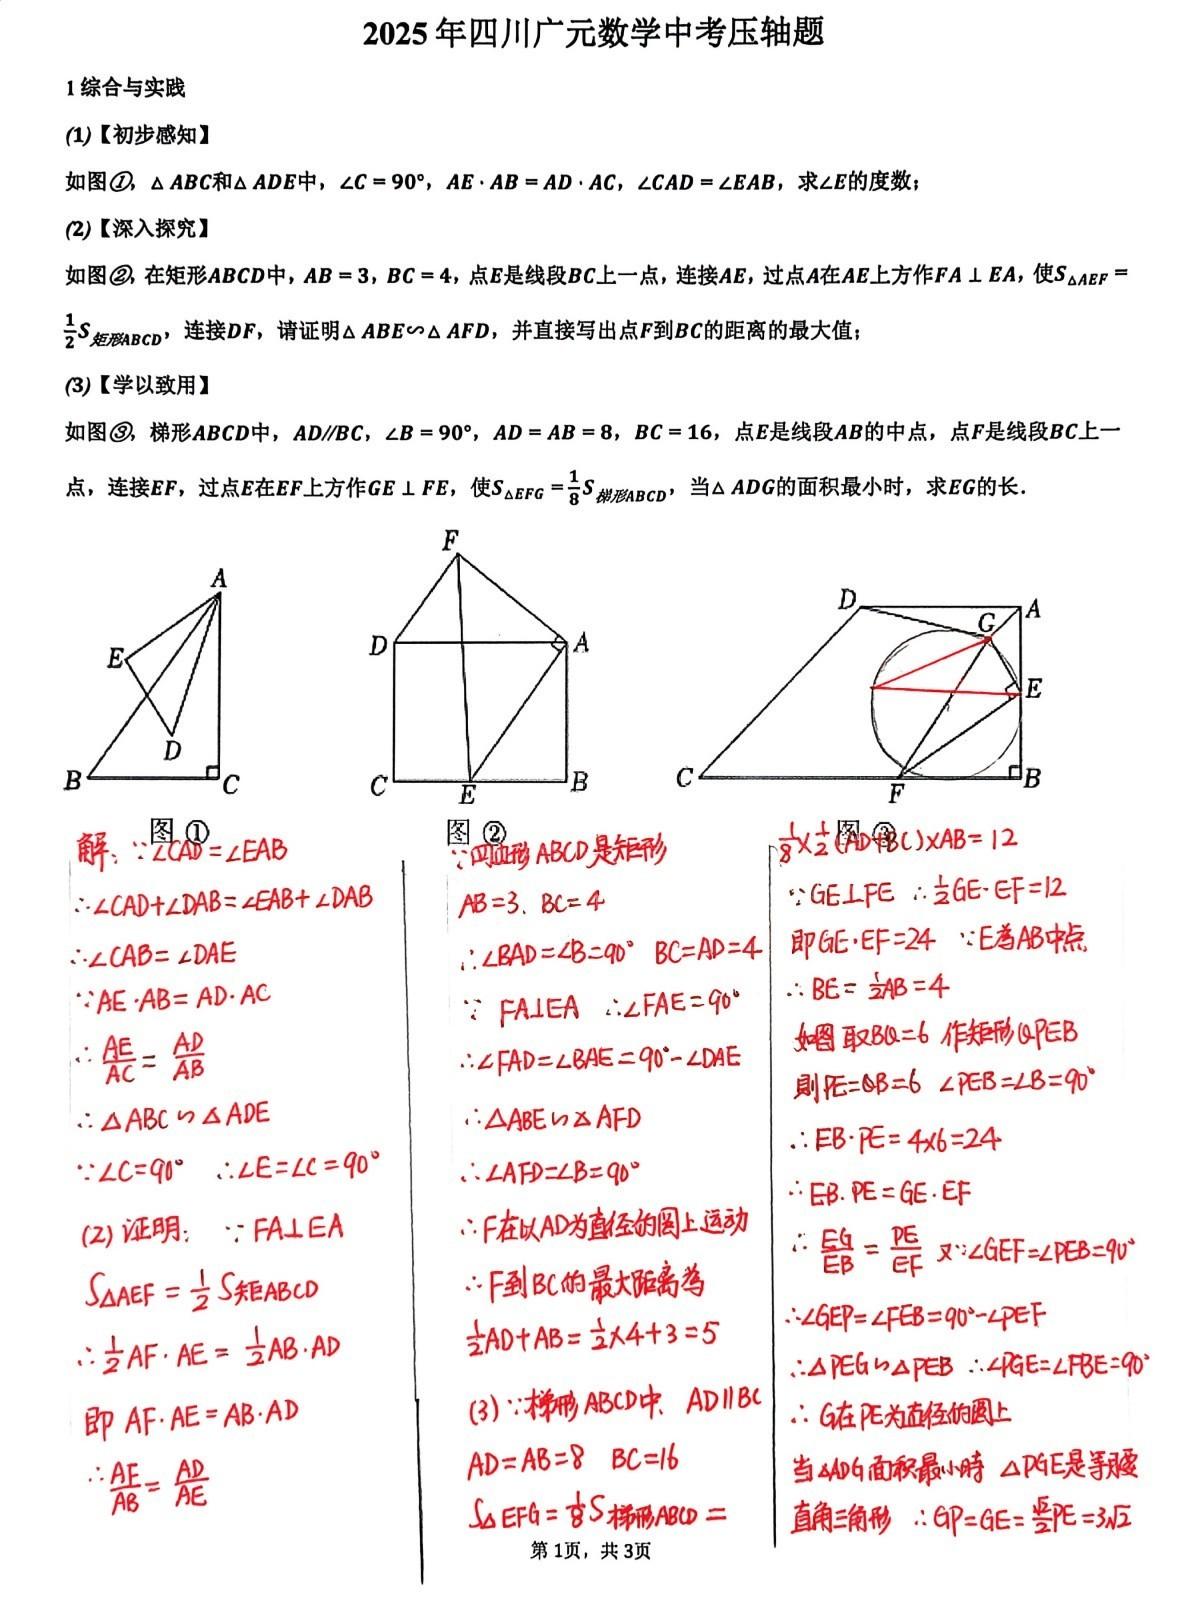 2025年四川广元数学中考压轴题
1 综合与实践
(1)【初步感知】
如图①, △ ABC和△ ADE中, ∠C = 90°, AE · AB = AD · AC, ∠CAD = ∠EAB, 求∠E的度数;
(2)【深入探究】
如图②, 在矩形ABCD中, AB = 3, BC = 4, 点E是线段BC上一点, 连接AE, 过点A在AE上方作FA ⊥ EA, 使S△AEF =
1/2 S矩形ABCD, 连接DF, 请证明△ ABE∽△ AFD, 并直接写出点F到BC的距离的最大值;
(3)【学以致用】
如图③, 梯形ABCD中, AD//BC, ∠B = 90°, AD = AB = 8, BC = 16, 点E是线段AB的中点, 点F是线段BC上一
点, 连接EF, 过点E在EF上方作GE ⊥ FE, 使S△EFG = 1/8 S梯形ABCD, 当△ ADG的面积最小时, 求EG的长.
A
E
D
B
C
图 ①
F
D
A
C
E
B
图 ②
D
A
G
E
C
F
B
图 ③
解: ∵∠CAD=∠EAB
∴∠CAD+∠DAB=∠EAB+∠DAB
∴∠CAB=∠DAE
∵AE·AB=AD·AC
∴AE/AC=AD/AB
∴△ABC∽△ADE
∵∠C=90° ∴∠E=∠C=90°
(2) 证明: ∵FA⊥EA
S△AEF=1/2 S矩ABCD
∴1/2 AF·AE=1/2 AB·AD
即 AF·AE=AB·AD
∴AF/AB=AD/AE
∵四边形ABCD是矩形
AB=3、BC=4
∴∠BAD=∠B=90° BC=AD=4
∵ FA⊥EA ∴∠FAE=90°
∴∠FAD=∠BAE=90°-∠DAE
∴△ABE∽△AFD
∴∠AFD=∠B=90°
∴F在以AD为直径的圆上运动
∴F到BC的最大距离為
1/2AD+AB=1/2×4+3=5
(3) ∵梯形ABCD中、AD∥BC
AD=AB=8 BC=16
S△EFG=1/8 S梯形ABCD=
1/8×1/2(AD+BC)×AB=12
∵GE⊥FE ∴1/2GE·EF=12
即GE·EF=24 ∵E為AB中点
∴BE=1/2AB=4
如图取BQ=6 作矩形QPEB
則PE=QB=6 ∠PEB=∠B=90°
∴EB·PE=4×6=24
∴EB·PE=GE·EF
∴EG/EB=PE/EF 又∵∠GEF=∠PEB=90°
∴∠GEP=∠FEB=90°-∠PEF
∴△PEG∽△PEB ∴∠PGE=∠FBE=90°
∴G在PE为直径的圆上
当△ADG面积最小時 △PGE是等腰
直角三角形 ∴GP=GE=√2/2PE=3√2
第 1页, 共 3页